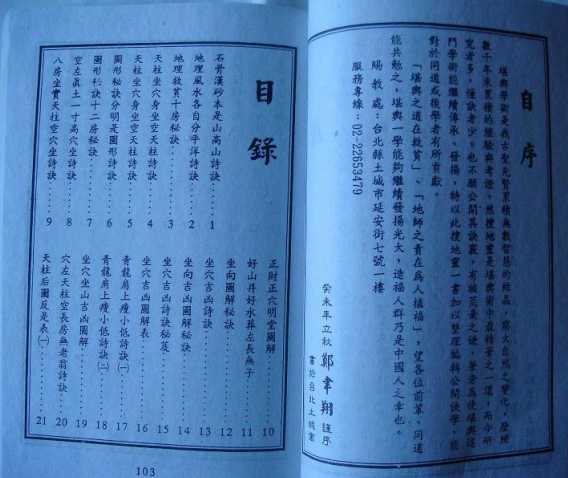 自序
堪輿學術是我古聖先賢累積無數智慧的結晶，窮大自然之變化，歷經
數千年來累積的經驗與考證。然搜地靈是堪輿術中最精華之一環，而今研
究者多，懂訣者少，也不願公開其訣竅，有極荒蕪之嫌，筆者為使堪輿這
門學術能繼續傳承、發揚，特以此搜地靈一書加以整理編輯公開訣學，能
對於同道或後學者有所貢獻。
「堪輿之道在救貧」、「地師之責在為人植福」，望各位前輩、同道
能共勉之，堪輿一學能夠繼續發揚光大，造福人群乃是中國人之幸也。
賜教處：台北縣土城市延安街七號一樓
服務專線：02-22653479
癸未年立秋 鄭韋翔 謹序
書於台北土城案
目錄
石骨漢砂本是山高山詩訣………1
地理風水各自分平洋詩訣………2
地理救貧十房秘訣………3
天柱坐穴身坐空天柱詩訣………4
天柱坐穴身坐空天柱詩訣………5
圖形秘訣分明是圖形詩訣………6
圖形秘訣十二房秘訣………7
空左真土一寸高穴坐詩訣………8
八房坐實天柱空穴坐詩訣………9
正財正穴明堂圖解………10
好山井好水葬左長無子………11
坐向圖解秘訣………12
坐穴吉凶詩訣………13
坐向吉凶圖解秘訣………14
坐穴吉凶詩訣秘笈………15
坐穴吉凶圖解表………16
青龍肩上瘦小低詩訣㈠………17
青龍肩上瘦小低詩訣㈡………18
坐穴坐山吉凶圖解………19
穴左天柱空長房無老翁詩訣………20
天柱后圖反是表㈠………21
103